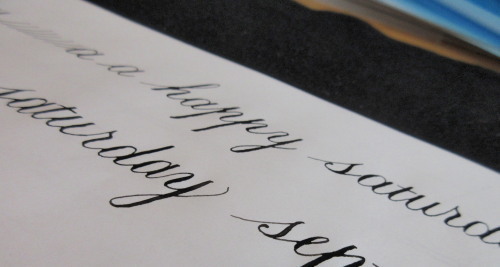 a a happy saturd
saturday sep